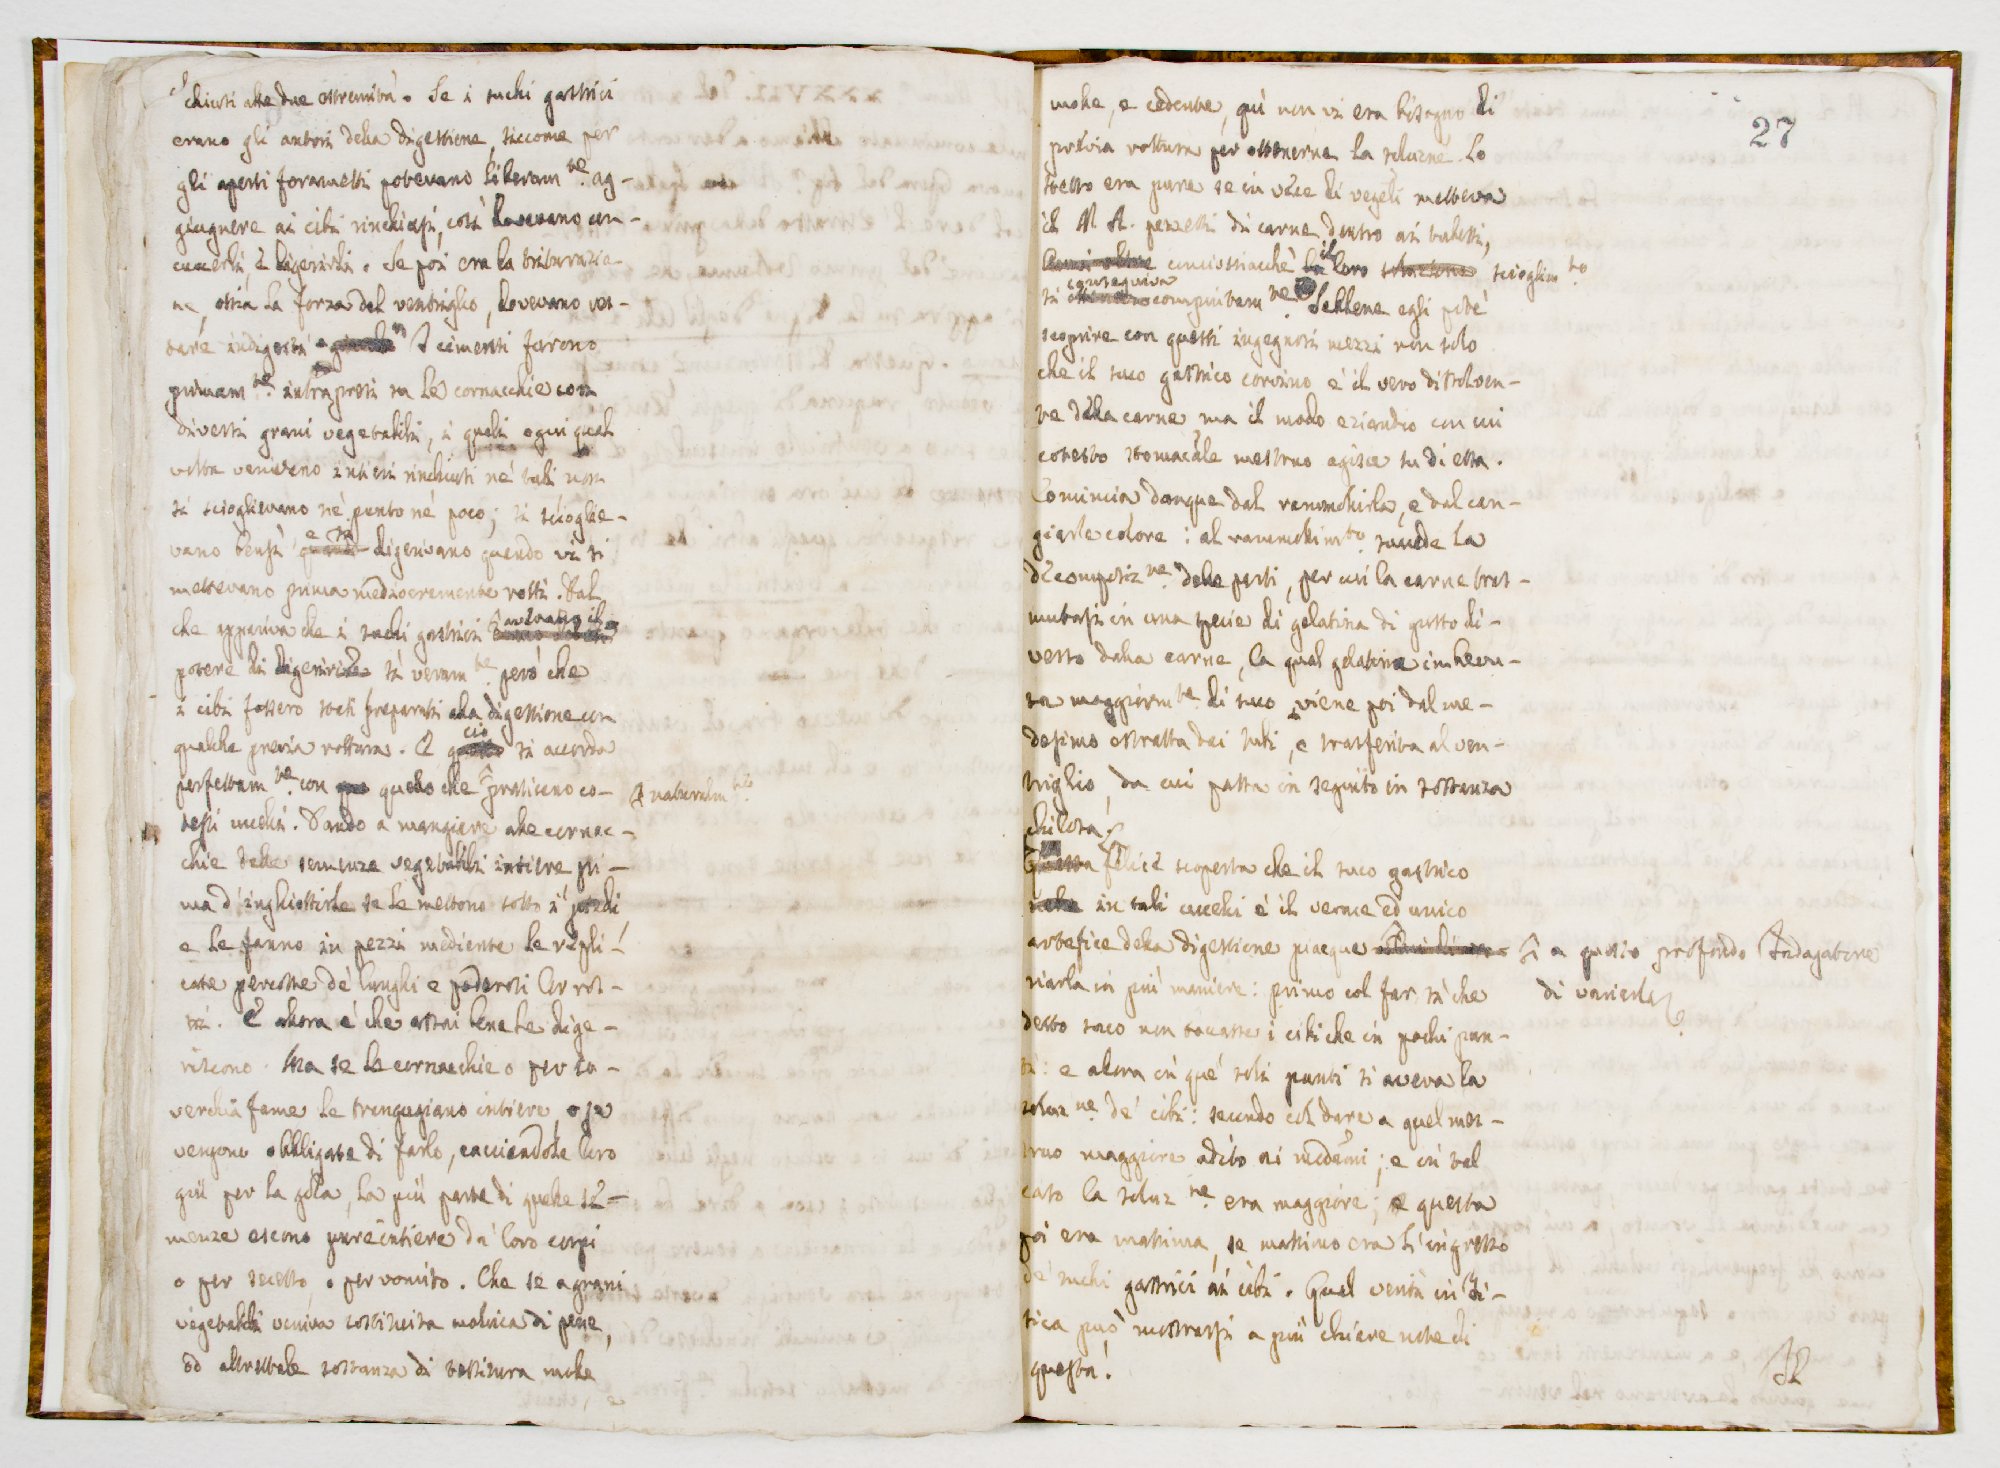 chiusi alle due estremità. Se i suchi gastrici
erano gli autori della digestione, siccome per
gli aperti forametti potevano liberam.te ag-
giugnere ai cibi rinchiusi, così dovevano cuo-
cuocerli, e digerirli. Se poi era la triturazio-
ne, ossia la forza del ventriglio, dovevano res-
tare indigesti I cimenti furono
primam.te intrapresi su le cornacchie con
diversi grani vegetabili, i quali ogni qual
volta venivano intieri rinchiusi ne' tubi non
si scioglievano nè punto nè poco; si scioglie-
vano bensì e si digerivano quando vi si
mettevano prima mediocremente rotti. Dal
che appariva che i suchi gastrici avevano il
potere di digerire sì veram.te però che
i cibi fossero stati preparati alla digestione con
qualche previa rottura. E ciò si accorda
perfettam.te con quello che praticano co-
testi uccelli. Dando a mangiare alle cornac-
naturalm.te
chie delle semenze vegetabili intiere pri-
ma d'inghiottirle se le mettono sotto i piedi
e le fanno in pezzi mediante le repli-
cate percosse de' lunghi e poderosi lor ros-
tri. E allora è che assai bene le dige-
riscono. Ma se le cornacchie o per so-
verchia fame le trangugiano intiere, o se
vengono obbligate di farlo, cacciandole loro
giù per la gola, la più parte di quelle se-
menze escono pure intiere da' loro corpi
o per secesso, o per vomito. Che se a grani
vegetabili veniva sostituita mollica di pane,
od altrettale sostanza di tessitura molle
27
molle, e cedente, quì non vi era bisogno di
previa rottura per ottenerne la soluzne. Lo
stesso era pure se in vece di vegeli metteva
il N. A. pezzetti di carne dentro ai tubetti,
conciossiacchè il loro scioglim.to
si conseguiva compiutam.te Sebbene egli potè
scoprire con questi ingegnosi mezzi non solo
che il suco gastrico corvino è il vero dissolven-
te della carne, ma il modo eziandio con cui
cotesto stomacale mestruo agisce su di essa.
Comincia dunque dal rammolirla, e dal can-
giarle colore: al rammolim.to succede la
decomposiz.ne delle parti, per cui la carne tras-
mutasi in una specie di gelatina di gusto di-
verso dalla carne, la qual gelatina imbevu-
ta maggiorm.te di suco, viene poi dal me-
desimo estratta dai tubi, e trasferita al ven-
triglio, da cui passa in seguito in sostanza
chilosa.
felice scoperta che il suco gastrico
in tali uccelli è il verace ed unico
artefice della digestione piacque
a questo profondo Indagatore
di variarla
riarla in più maniere: primo col far sì che
detto suco non toccasse i cibi che in pochi pun-
ti: e allora in que' soli punti si aveva la
soluz.ne de' cibi: secondo col dare a quel mes-
truo maggiore adito ai medemi; e in tal
caso la soluz.ne era maggiore; e questa
poi era massima, se massimo era l'ingresso
de' suchi gastrici ai cibi. Qual verità in Fi-
sica può mostrarsi a più chiare note di
questa!
Il